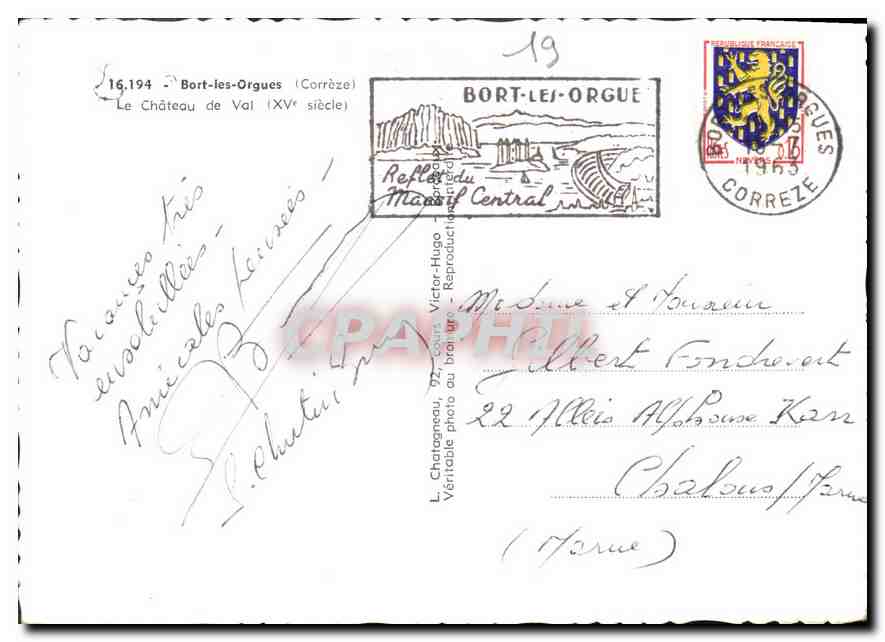 19
16.194 - Bort-les-Orgues (Corrèze)
Le Château de Val (XVe siècle)
BORT-LES-ORGUE
Reflet du
Massif Central
REPUBLIQUE FRANÇAISE
NEVERS
0,15
BORT LES ORGUES
1963
CORREZE
Vacances très
ensoleillées -
Amicales pensées -
L. Chatagneau, 92, cours Victor-Hugo - Bordeaux
Véritable photo au bromure - Reproduction interdite
CPAPHIL
Madame et Monsieur
Gilbert
22 Allées Alphonse Karr
Chalons/Marne
(Marne)